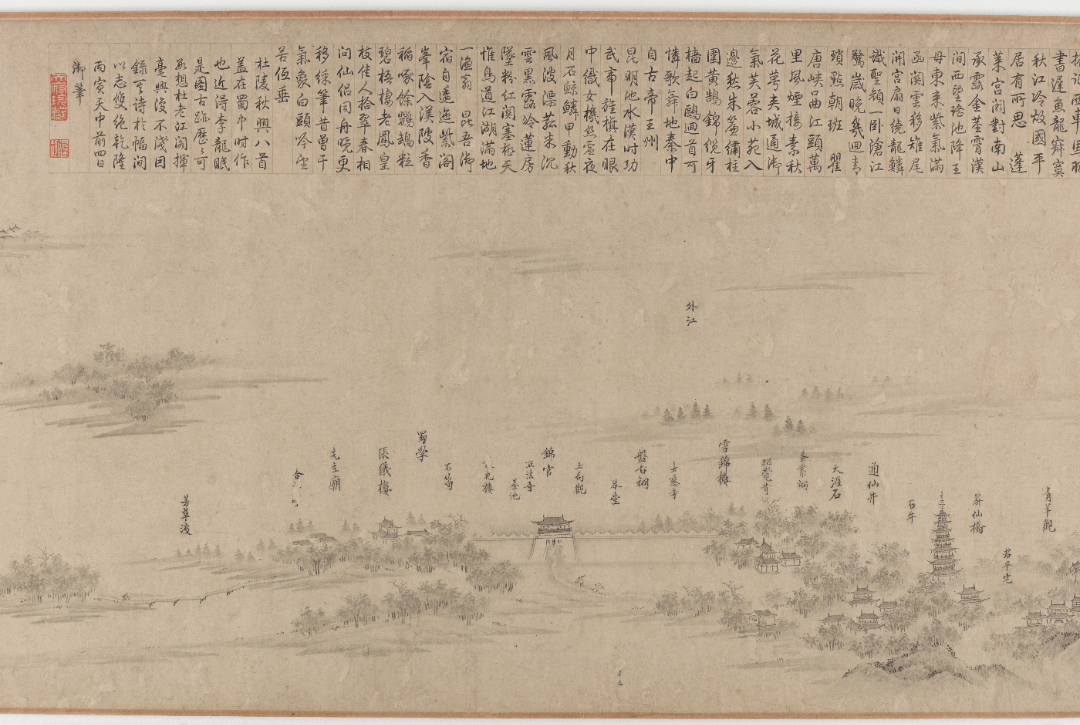 征西車馬羽
書遲魚龍寂寞
秋江冷故國平
居有所思 蓬
萊宮闕對南山
承露金莖霄漢
間西望瑤池降王
母東來紫氣滿
函關雲移雉尾
開宮扇日繞龍鱗
識聖顏一卧滄江
驚歲晚幾迴青
瑣點朝班 瞿
唐峽口曲江頭萬
里風煙接素秋
花萼夾城通御
氣芙蓉小苑入
邊愁朱簾繡柱
圍黃鵠錦纜牙
檣起白鷗迴首可
憐歌舞地秦中
自古帝王州
昆明池水漢時功
武帝旌旗在眼
中織女機絲虛夜
月石鯨鱗甲動秋
風波漂菰米沉
雲黑露冷蓮房
墜粉紅關塞極天
惟鳥道江湖滿地
一漁翁 昆吾御
宿自逶迤紫閣
峯陰入渼陂香
稻啄餘鸚鵡粒
碧梧棲老鳳皇
枝佳人拾翠春相
問仙侶同舟晚更
移綵筆昔曾干
氣象白頭吟望
苦低垂
杜陵秋興八首
蓋在蜀中時作
也近得李龍眠
是圖古蹟歷歷可
數想杜老江閣揮
毫興復不淺因
錄其詩於幅間
以志悠絶乾隆
丙寅天中前四日
御筆
外江
青羊觀
君平宅
昇仙橋
石牛
通仙井
天涯石
雪錦樓
盤古祠
草堂
銘官
正法寺
石筍
蜀學
張儀樓
先主廟
芳草渡